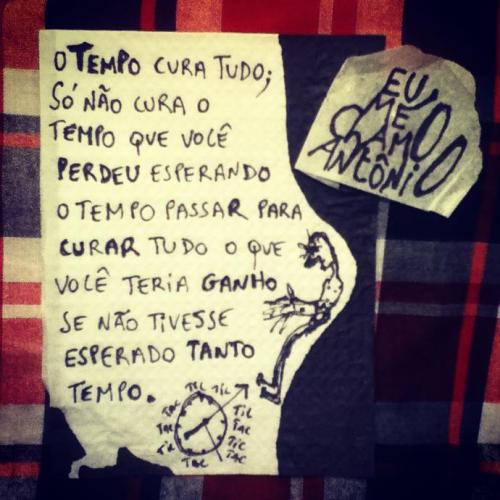 O TEMPO CURA TUDO;
SÓ NÃO CURA O
TEMPO QUE VOCÊ
PERDEU ESPERANDO
O TEMPO PASSAR PARA
CURAR TUDO O QUE
VOCÊ TERIA GANHO
SE NÃO TIVESSE
ESPERADO TANTO
TEMPO.
EU
ME
CHAMO
ANTÔNIO
TIC TIC
TAC TIC
TAC TAC
TIC TIC
TAC TAC